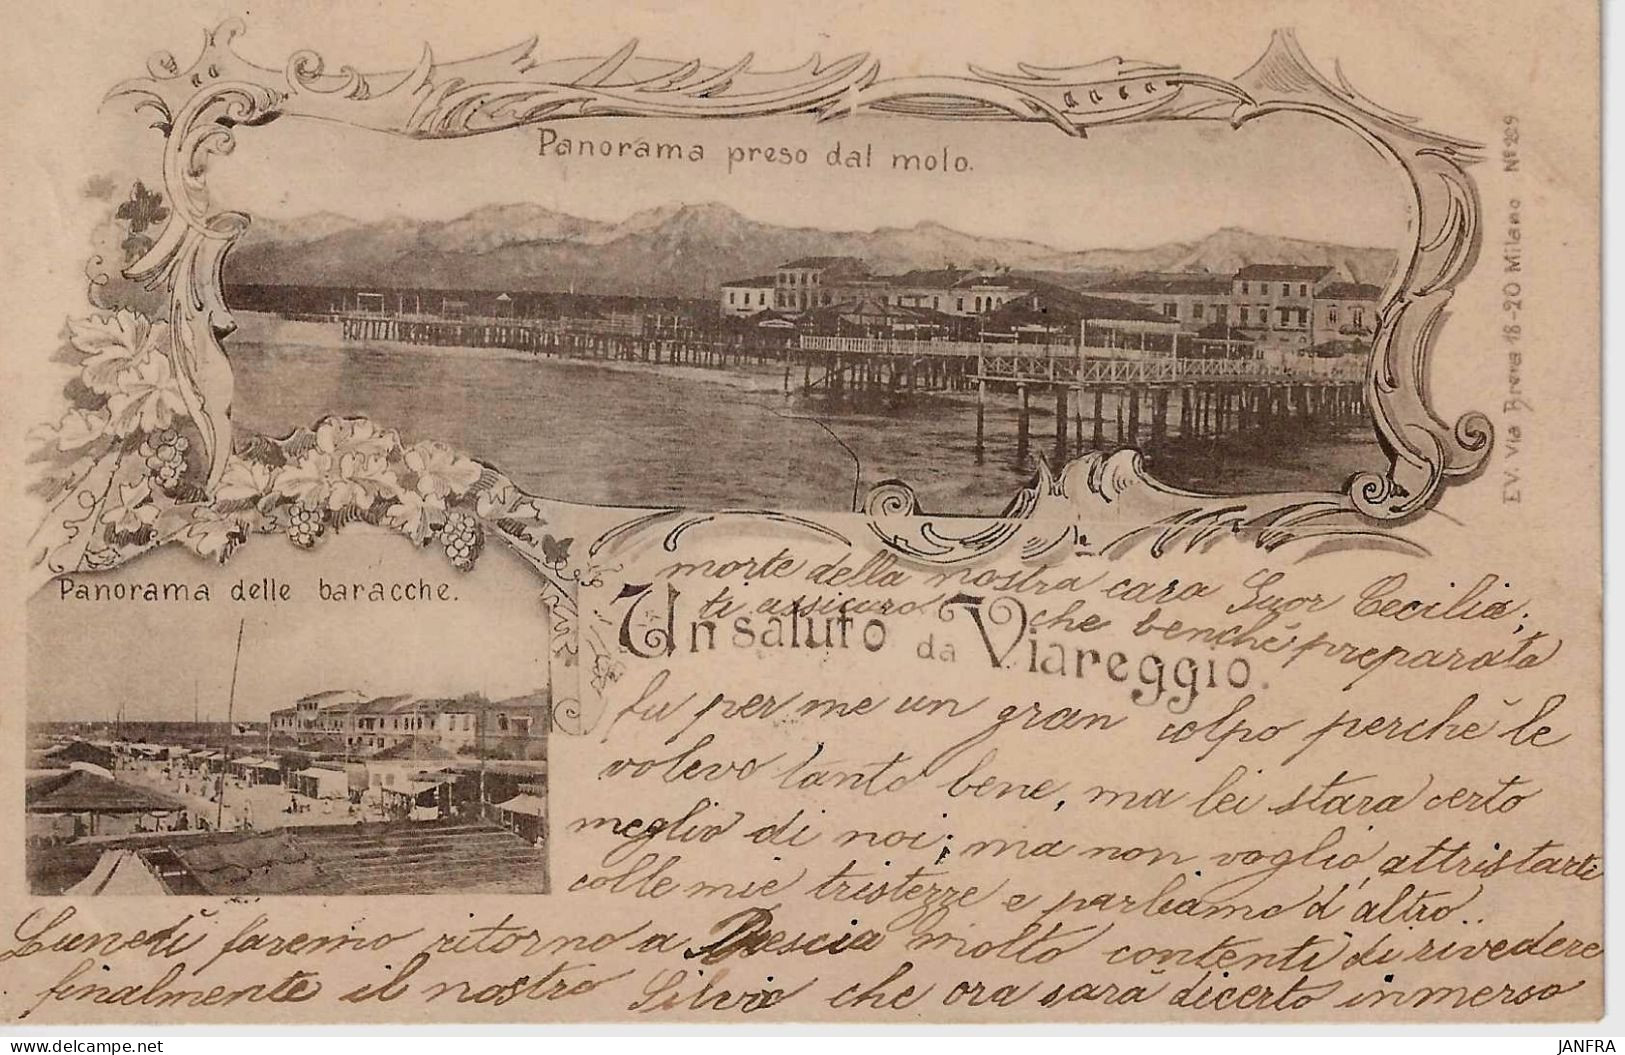 Panorama preso dal molo.
EV. Via Brera 18-20 Milano Nº 289
Panorama delle baracche.
Un saluto da Viareggio.
la
morte della nostra cara Suor Cecilia;
ti assicuro che benchè preparata
fu per me un gran colpo perchè le
volevo tanto bene, ma lei stara certo
meglio di noi; ma non voglio attristarti
colle mie tristezze e parliamo d'altro..
Lunedì faremo ritorno a Brescia molto contenti di rivedere
finalmente il nostro Silvio che ora sarà dicerto immerso
www.delcampe.net
JANFRA